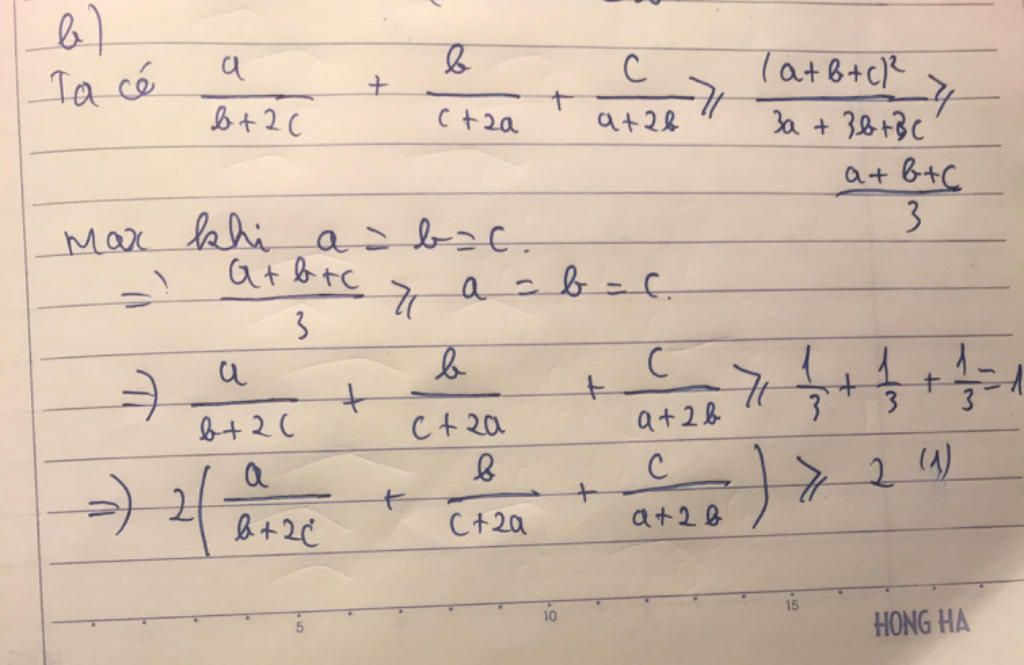 b)
Ta có a/(b+2c) + b/(c+2a) + c/(a+2b) ⩾ (a+b+c)²/(3a+3b+3c) ⩾
(a+b+c)/3
Max khi a = b = c.
=> (a+b+c)/3 ⩾ a = b = c.
=> a/(b+2c) + b/(c+2a) + c/(a+2b) ⩾ 1/3 + 1/3 + 1/3 = 1
=> 2(a/(b+2c) + b/(c+2a) + c/(a+2b)) ⩾ 2 (1)
5 10 15
HONG HA